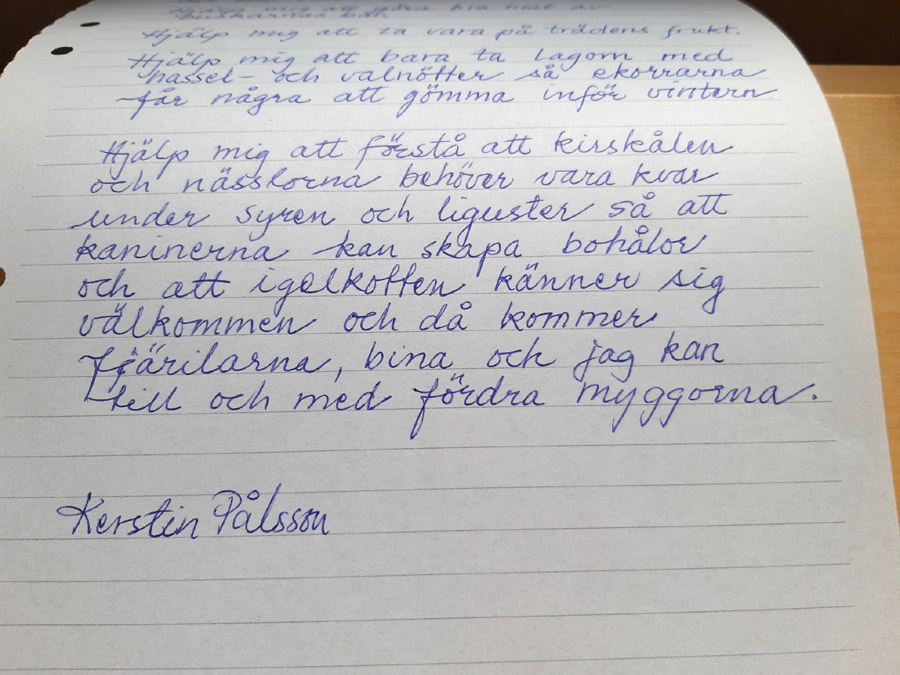 Hjälp mig att göra bra nust av
buskarnas bär.
Hjälp mig att ta vara på trädens frukt.
Hjälp mig att bara ta lagom med
hassel- och valnötter så ekorrarna
får några att gömma inför vintern.
Hjälp mig att förstå att kirskålen
och nässlorna behöver vara kvar
under syren och liguster så att
kaninerna kan skapa bohålor
och att igelkotten känner sig
välkommen och då kommer
fjärilarna, bina och jag kan
till och med fördra myggorna.
Kerstin Pålsson